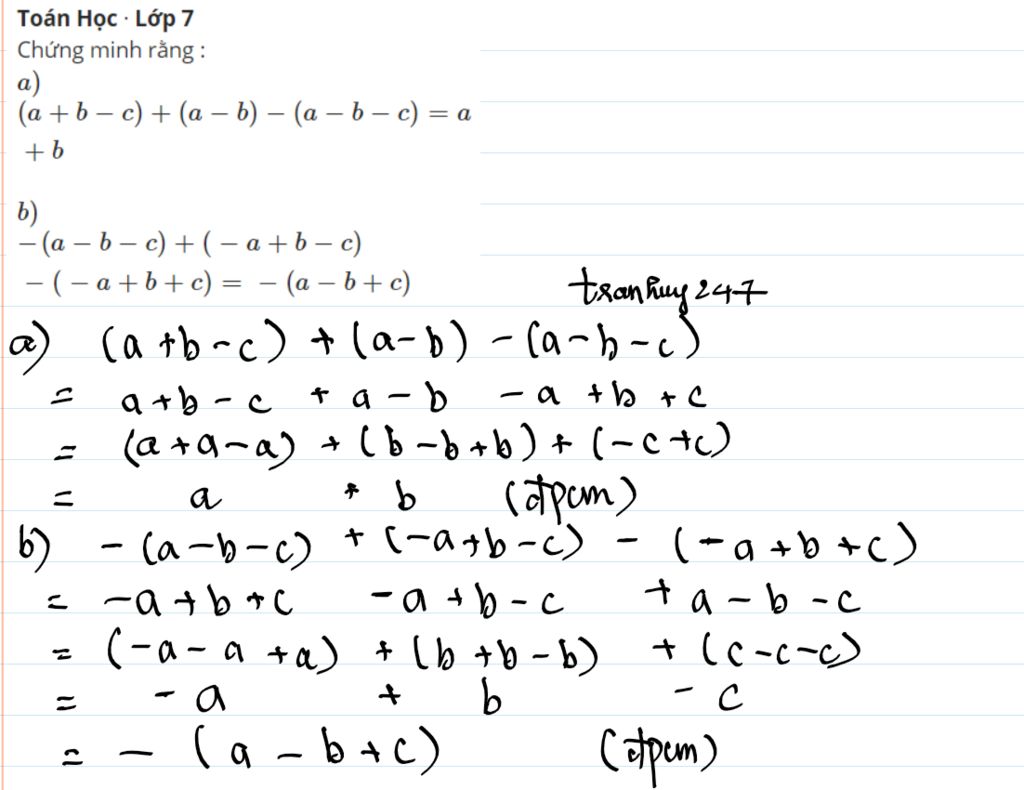 Toán Học · Lớp 7
Chứng minh rằng :
a)
(a + b − c) + (a − b) − (a − b − c) = a
+ b
b)
− (a − b − c) + ( − a + b − c)
− ( − a + b + c) = − (a − b + c)
tranhuy247
a) (a+b-c) + (a-b) - (a-b-c)
= a+b-c + a-b -a+b+c
= (a+a-a) + (b-b+b) + (-c+c)
= a + b (đpcm)
b) -(a-b-c) + (-a+b-c) - (-a+b+c)
= -a+b+c -a+b-c +a-b-c
= (-a-a+a) + (b+b-b) + (c-c-c)
= -a + b - c
= - (a-b+c) (đpcm)